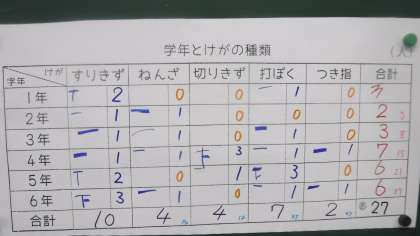 学年とけがの種類
(人)
学年 けが すりきず ねんざ 切りきず 打ぼく つき指 合計
1年 T 2 0 0 一 1 0 3
2年 一 1 一 1 0 0 0 2 5
3年 一 1 一 1 0 一 1 0 3 8
4年 一 1 一 1 下 3 一 1 一 1 7 15
5年 T 2 0 1 下 3 0 6 21
6年 下 3 一 1 0 一 1 一 1 6 27
合計 10 4 4 7 2 27